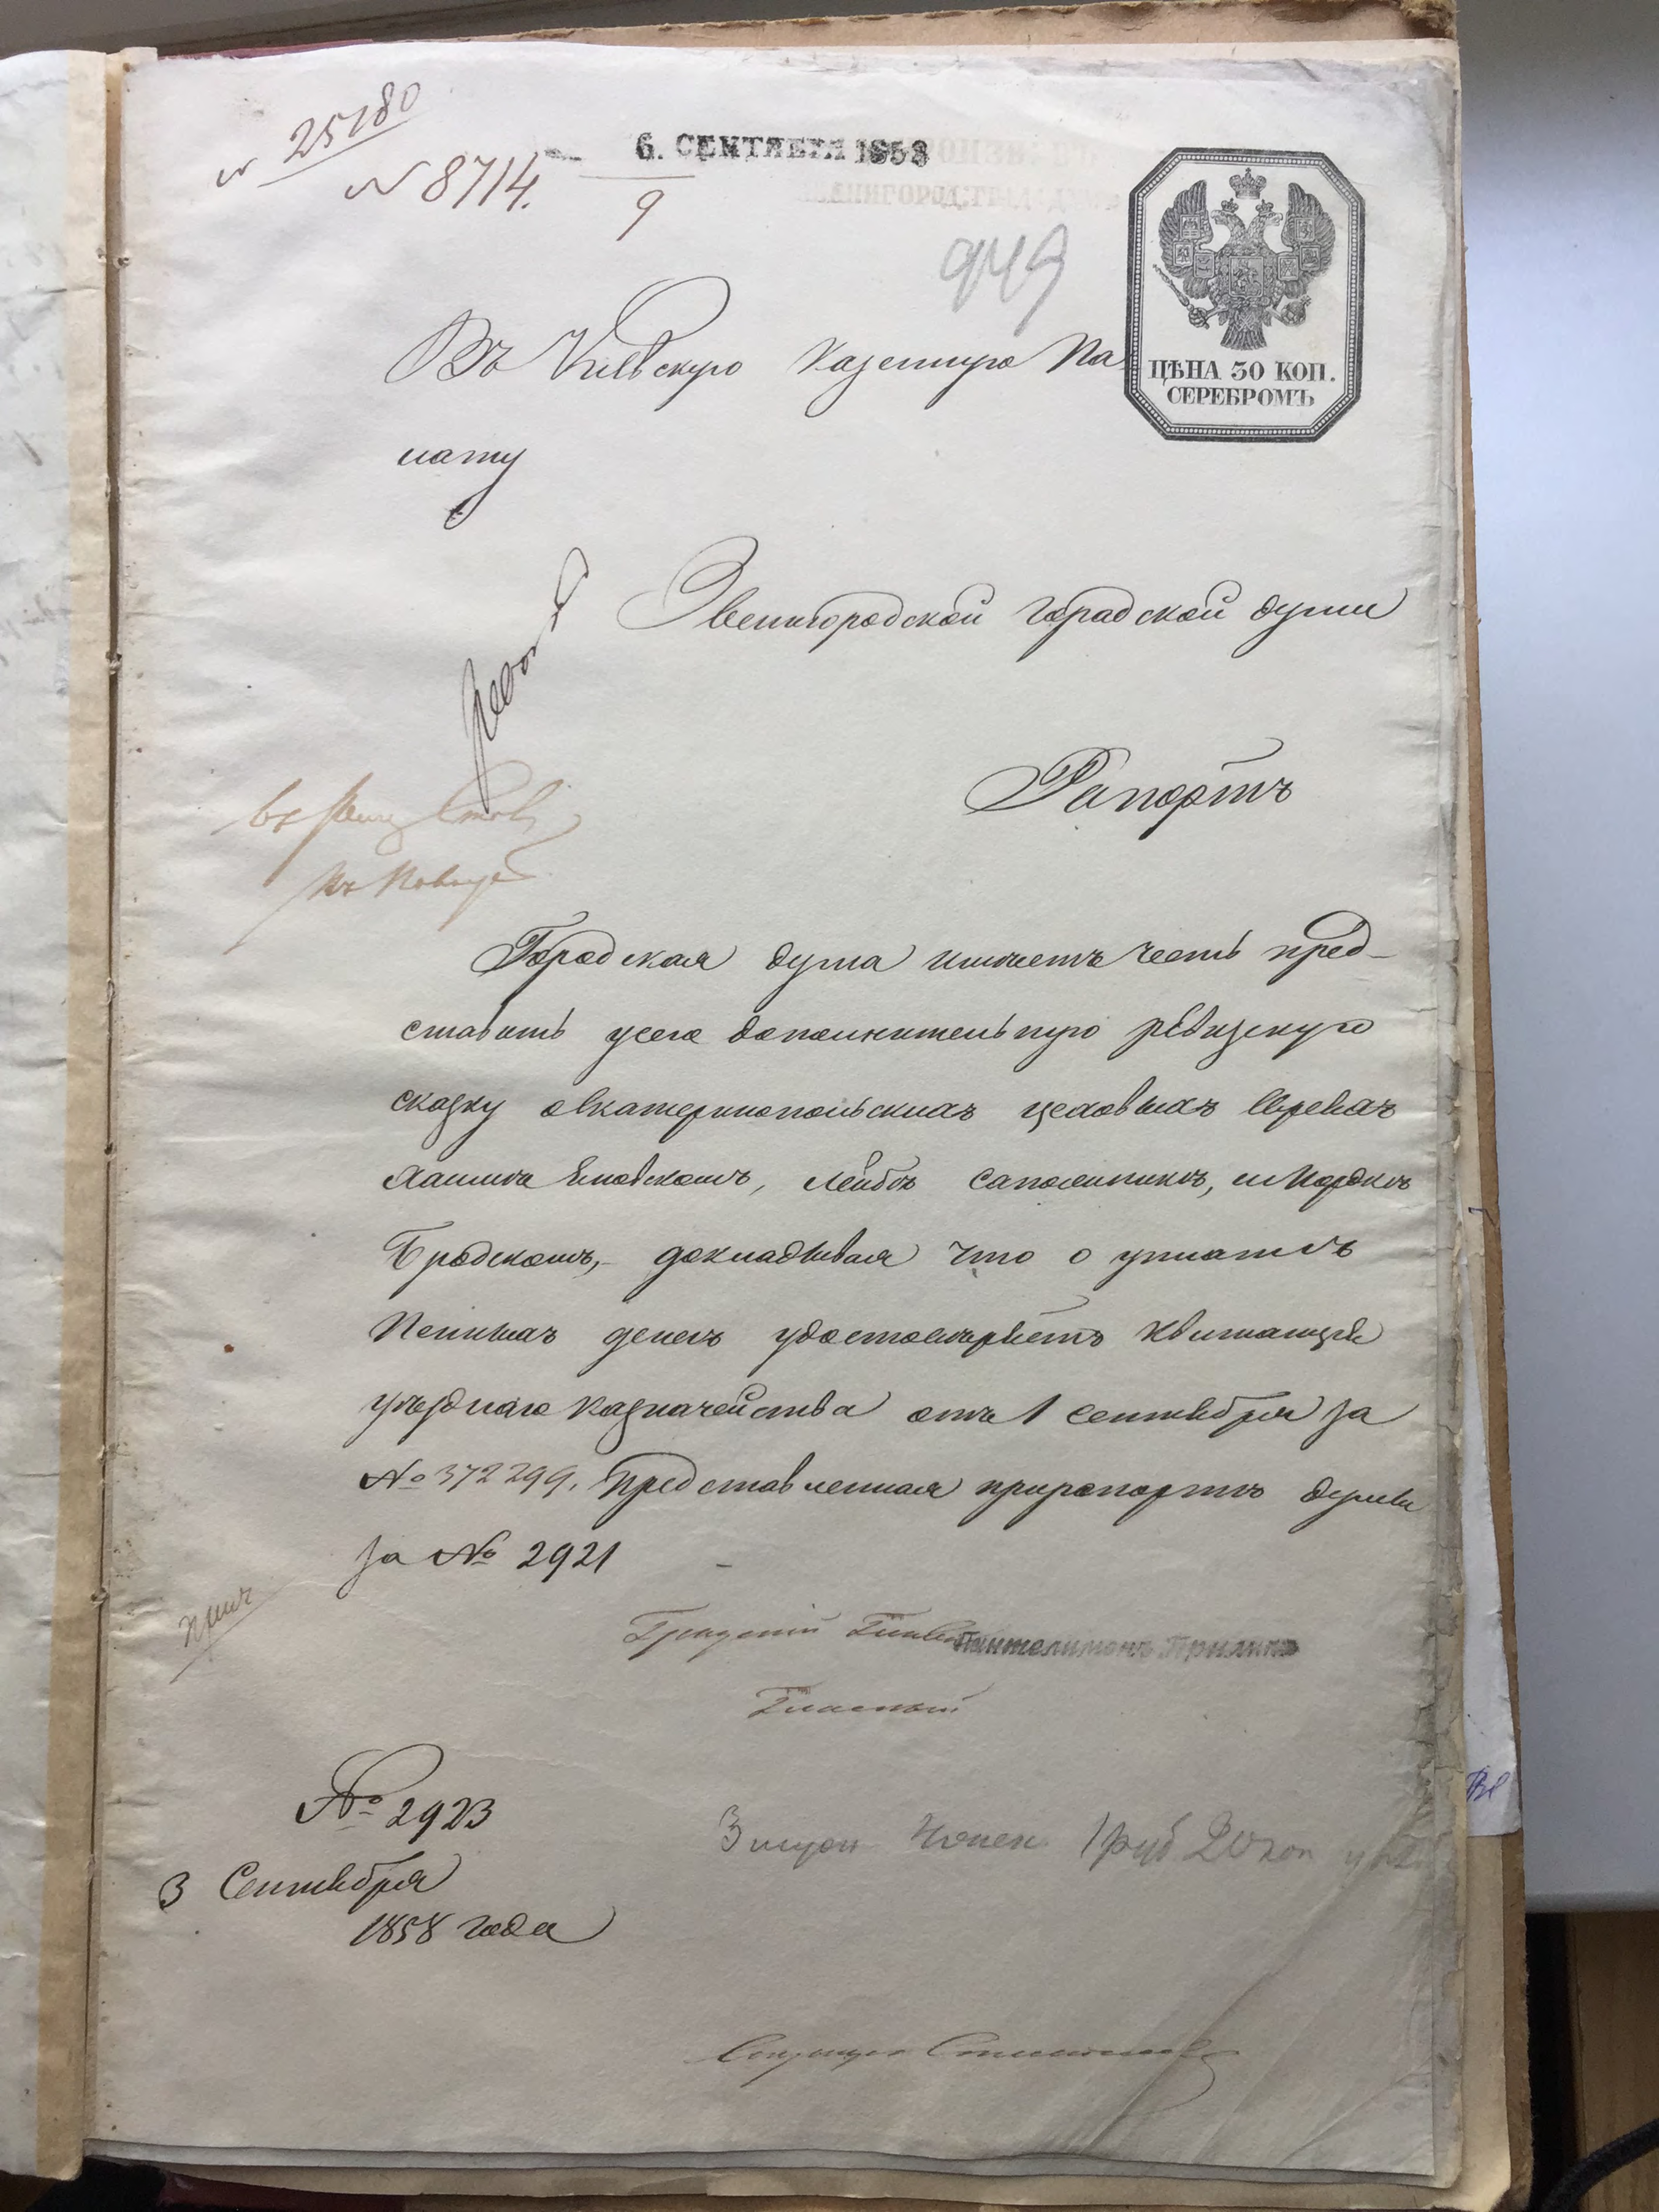 25180
N 8714.
6. СЕНТЯБРЯ 1858
9
949
ЦѢНА 30 КОП.
СЕРЕБРОМЪ
Въ Кіевскую Казенную Па
лату
Звенигородской городской думы
Рапортъ
Городская дума имѣетъ честь пред-
ставить у сего дополнительную ревизскую
сказку о Екатеринопольскихъ цеховыхъ Евреяхъ
Хаимѣ Яновскомъ, Лейбѣ Сапожникѣ, и Мордкѣ
Бродскомъ, докладывая что о уплатѣ
Пенныхъ денегъ удостовѣряетъ Квитанція
уѣзднаго Казначейства отъ 1 Сентября за
№ 372299. Представленная при рапортѣ думы
за № 2921
Градскій Глава Пантелимонъ Прилипко
Гласный
№ 2923
3 Сентября
1858 года
1 руб 20 коп